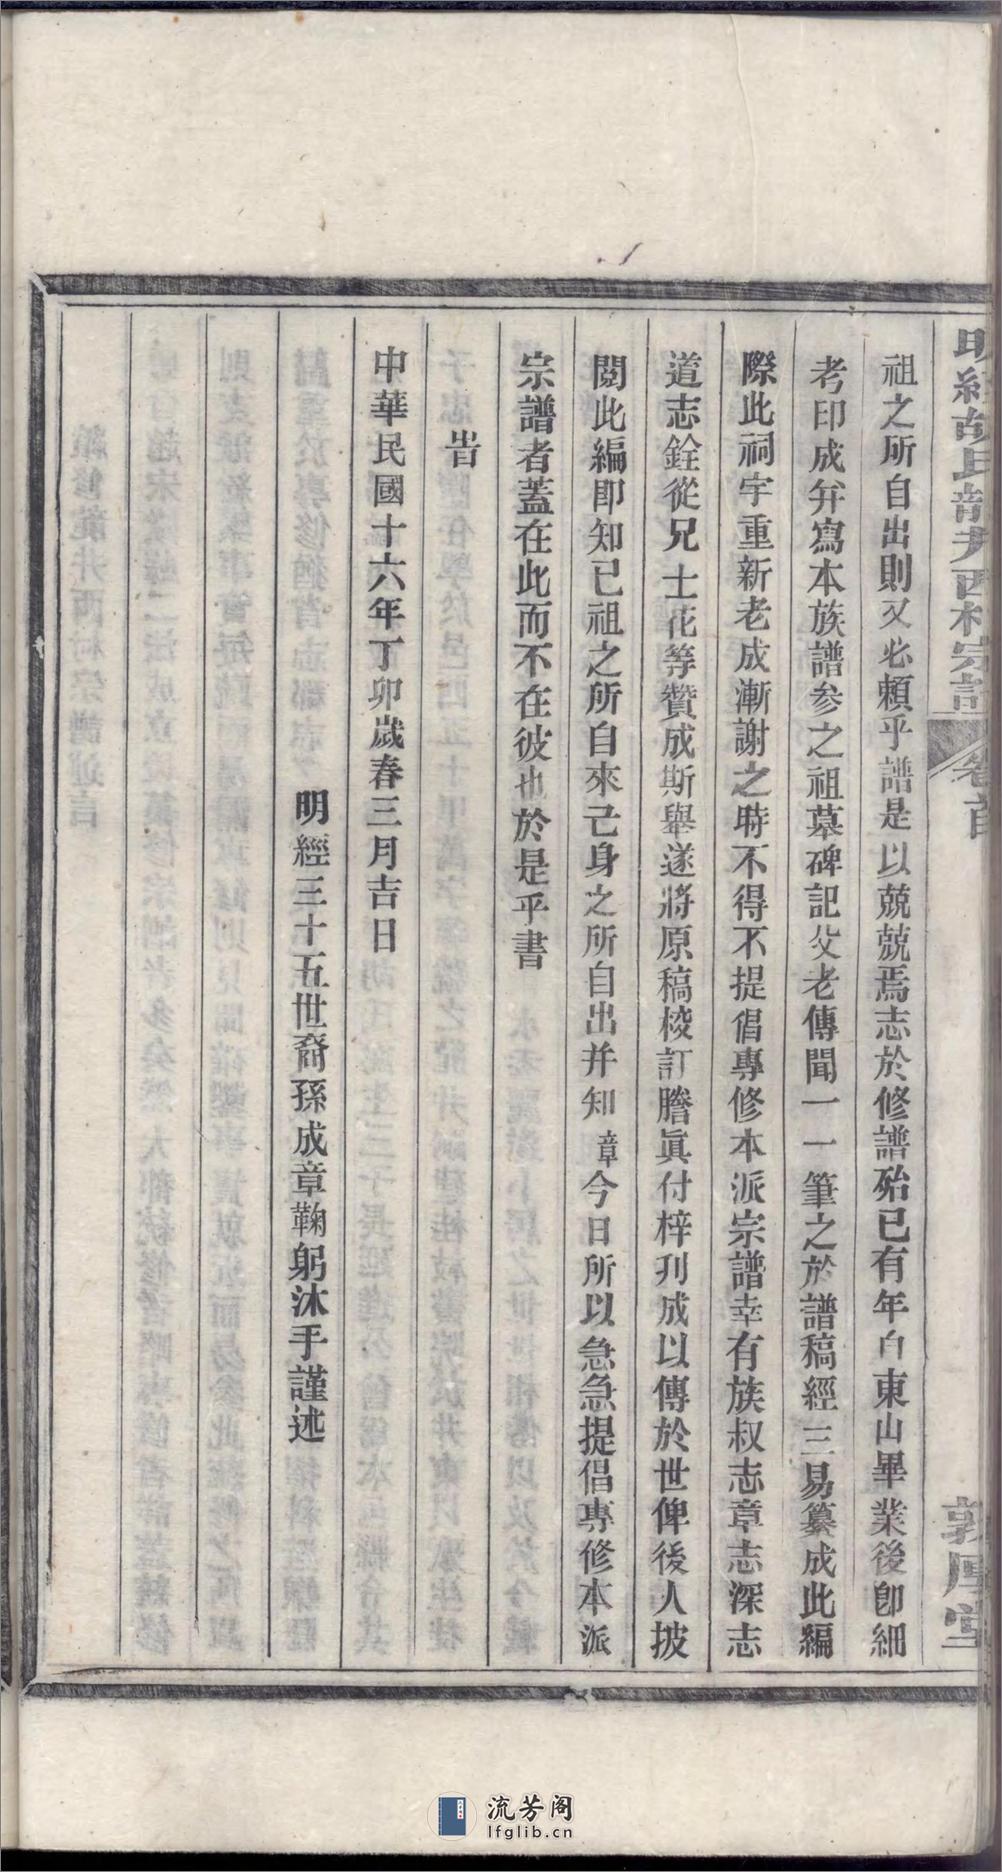 明經胡氏龍井西村宗譜 卷首 敦厚堂
祖之所自出則又必賴乎譜是以兢兢焉志於修譜殆已有年自東山畢業後卽細
考印成弁寫本族譜參之祖墓碑記父老傳聞一一筆之於譜稿經三易纂成此編
際此祠宇重新老成漸謝之時不得不提倡專修本派宗譜幸有族叔志章志深志
道志銓從兄士花等贊成斯舉遂將原稿校訂謄眞付梓刋成以傳於世俾後人披
閱此編即知已祖之所自來己身之所自出并知章今日所以急急提倡專修本派
宗譜者蓋在此而不在彼也於是乎書
旹
中華民國十六年丁卯歲春三月吉日
明經三十五世裔孫成章鞠躬沐手謹述
流芳阁
lfglib.cn